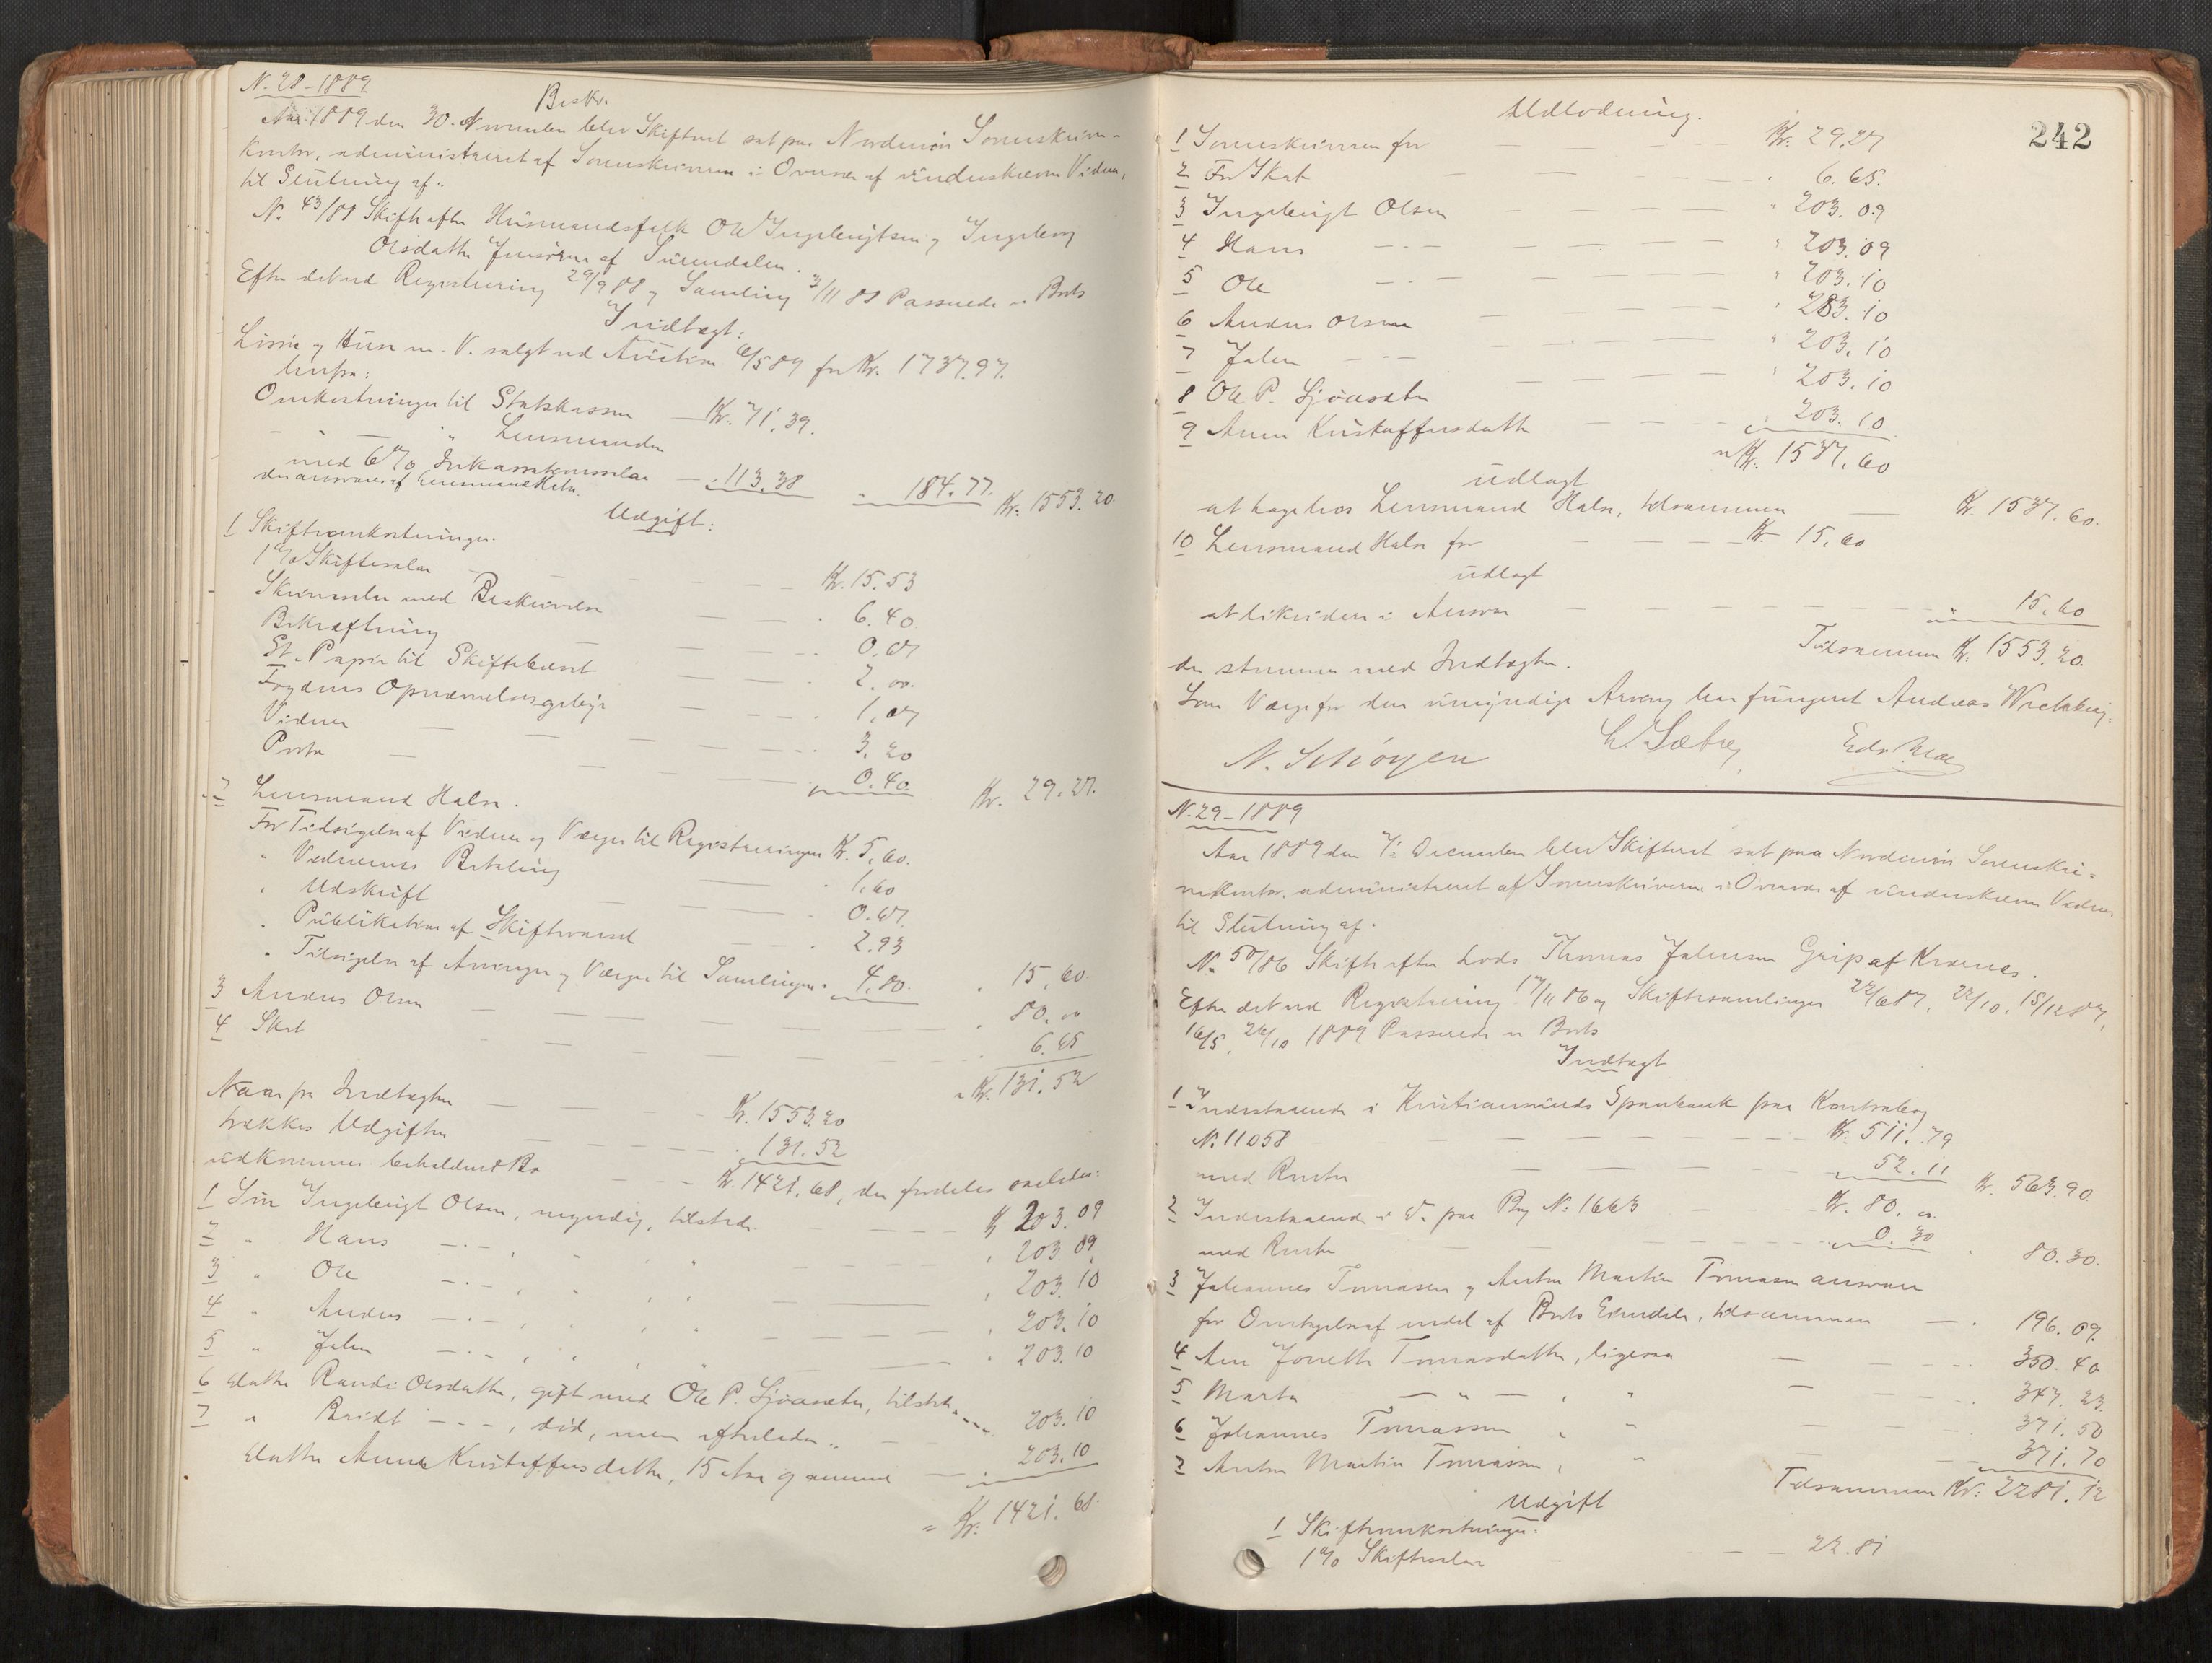 N. 28 - 1889
Beskr.
Aar 1889 den 30. November blev Skifteret sat paa Nordmør Sorenskriver-
kontor, administreret af Sorenskriveren i Overvær af underskrevne Vidner,
til Slutning af:
N. 43/88 Skifte efter Husmandsfolk Ole Ingebrigtsen og Ingeborg
Olsdatter af Surendalen.
Efter det ved Registrering 29/9 88 og Samling 3/11 88 Passerede er Boets
Indtægt:
Løsøre og Huse m. V. solgt ved Auction 6/5 89 for Kr. 1737.97.
herfra:
Omkostninger til Statskassen — Kr. 71.39.
— " — " Lensmanden
med 6% Inkassationssalar — " 113.38 " 184.77. Kr. 1553.20
der ansvares af Lensmand Halse.
Udgift:
1 Skifteomkostninger.
1% Skiftesalar — Kr. 15.53
Skriversalar med Beskrivelse — 6.40.
Bekræftning — 0.67
St. Papir til Skiftebrevet — 2.00.
Fogdens Opnævnelsesgebyr — 1.07
Vidner — 3.20
Porto — 0.40 Kr. 29.27.
2 Lensmand Halse.
For Tilsigelse af Vidner og Værge til Registreringen Kr. 5.60.
" Vidnernes Betaling — 1.60
" Udskrift — 0.67.
" Publikation af Skiftevarsel — 2.93
" Tilsigelse af Arvinger og Værge til Samlingen " 4.80. " 15.60.
3 Anders Olsen — 80.00
4 Skat — 6.65
= Kr. 131.52
Naar fra Indtægten — Kr. 1553.20
trækkes Udgiften — " 131.52
udkommer beholdent Bo — Kr. 1421.68, der fordeles saaledes:
1 Søn Ingebrigt Olsen, myndig, tilstede — Kr 203.09
2 " Hans — " — , " , " — " 203.09
3 " Ole — " — , " , " — " 203.10
4 " Anders — " — , " , " — " 203.10
5 " John — " — , " , " — " 203.10
6 datter Randi Olsdatter, gift med Ole P. Sjøasæter, tilstede — 203.10
7 " Beridt — " — , død, men efterladt: —
datter Anna Kristoffersdatter, 15 Aar gammel — " 203.10
= Kr. 1421.68.
242
Udlodning.
1 Sorenskriveren for — Kr. 29.27
2 For Skat — " 6.65.
3 Ingebrigt Olsen — " 203.09
4 Hans — " — " 203.09
5 Ole — " — " 203.10
6 Anders Olsen — " 203.10
7 John — " — " 203.10
8 Ole P. Sjøasæter — " 203.10
9 Anna Kristoffersdatter — " 203.10
= Kr. 1537.60
udlagt
at tage hos Lensmand Halse, tilsammen — Kr. 1537.60.
10 Lensmand Halse for — Kr. 15.60
udlagt
at likvidere i Ansvar — " 15.60
Tilsammen Kr. 1553.20.
der stemmer med Indtægten.
Som Værge for den umyndige Arving har fungeret Andreas
N. Schrøyen L. Sæbrey
N. 29 - 1889
Aar 1889 den 7/12 December blev Skifteret sat paa Nordmør Sorenskri-
verkontor, administreret af Sorenskriveren i Overvær af underskrevne Vidner
til Slutning af:
N. 50/86 Skifte efter Lods Thomas Johnsen Grip af Kværnes.
Efter det ved Registrering 17/11 86 og Skiftesamlinger 22/6 87, 22/10, 15/12 87,
16/5, 26/10 1889 Passerede er Boets
Indtægt
1 Indestaaende i Kristiansunds Sparebank paa Kontrabog
N. 11058 — Kr. 511.79
med Renter — " 52.11 Kr. 563.90.
2 Indestaaende i do. paa Bog N. 1663 — Kr. 80.00.
med Renter — " 0.30 " 80.30.
3 Johannes Tomasen og Anton Martin Tomasen ansvare
for Overtagelse af endel af Boets Eiendele, tilsammen — " 196.09.
4 Ane Jonette Tomasdatter, ligesaa — 350.40
5 Marta — " — , " — 347.23.
6 Johannes Tomassen , " — 371.50
7 Anton Martin Tomassen , " — 371.70
Tilsammen Kr. 2281.12
Udgift
1 Skifteomkostninger.
1% Skiftesalar — 22.81